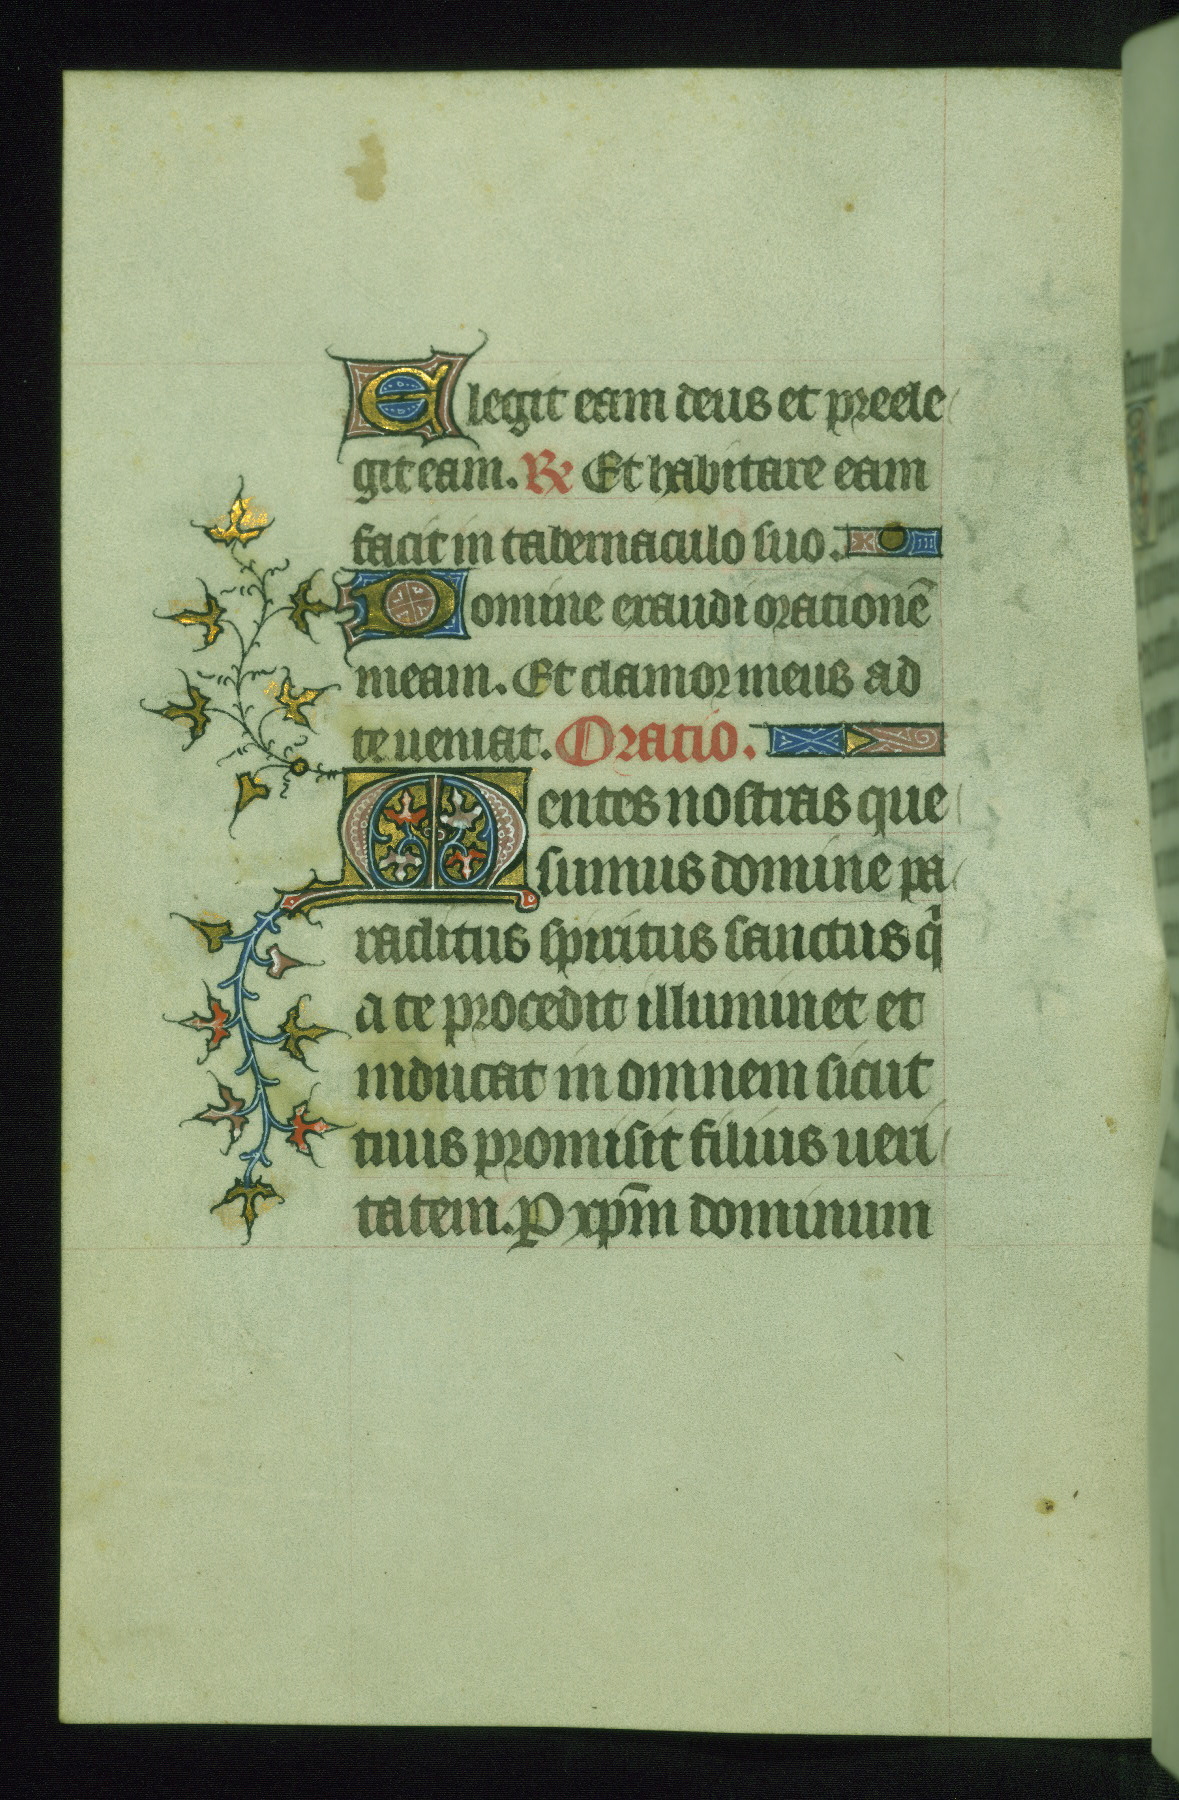 Elegit eam deus et preele
git eam. ℟ Et habitare eam
facit in tabernaculo suo.
Domine exaudi orationē
meam. Et clamor meus ad
te ueniat. Oratio.
Mentes nostras que
sumus domine pa
raclitus spiritus sanctus q̇
a te procedit illuminet et
inducat in omnem sicut
tuus promisit filius ueri
tatem. P xp̄m dominum